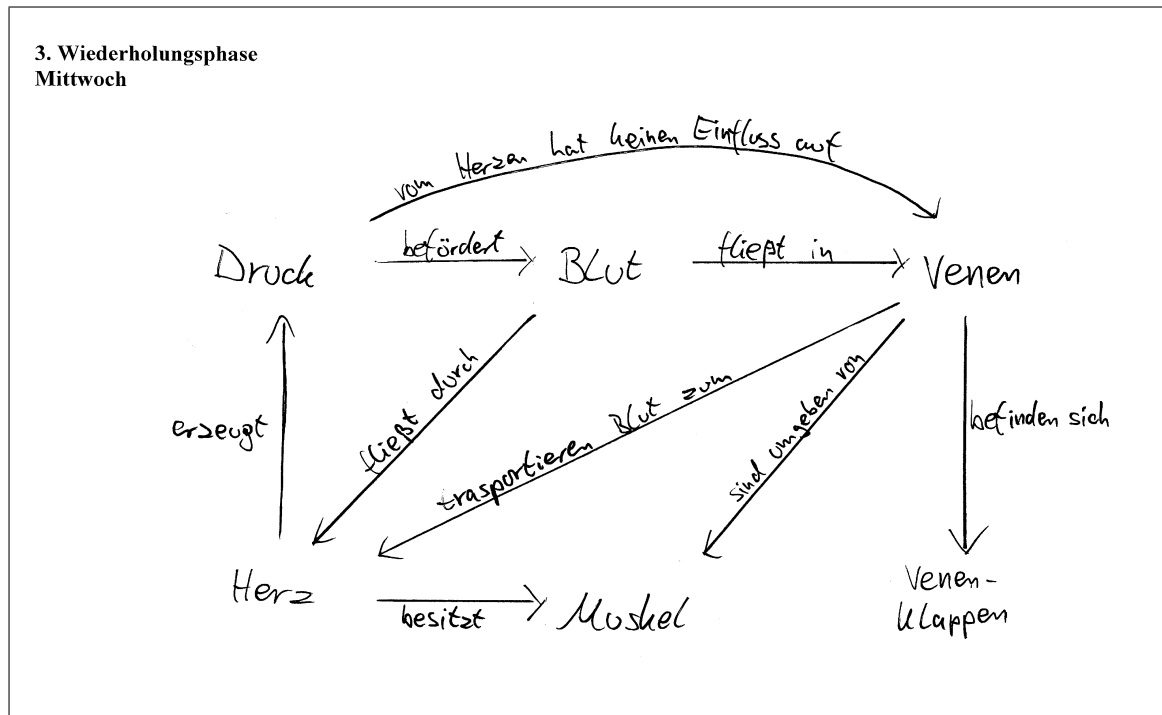 3. Wiederholungsphase
Mittwoch
vom Herzen hat keinen Einfluss auf
Druck
befördert
Blut
fließt in
Venen
erzeugt
fließt durch
trasportieren Blut zum
sind umgeben von
befinden sich
Herz
besitzt
Muskel
Venen-
klappen